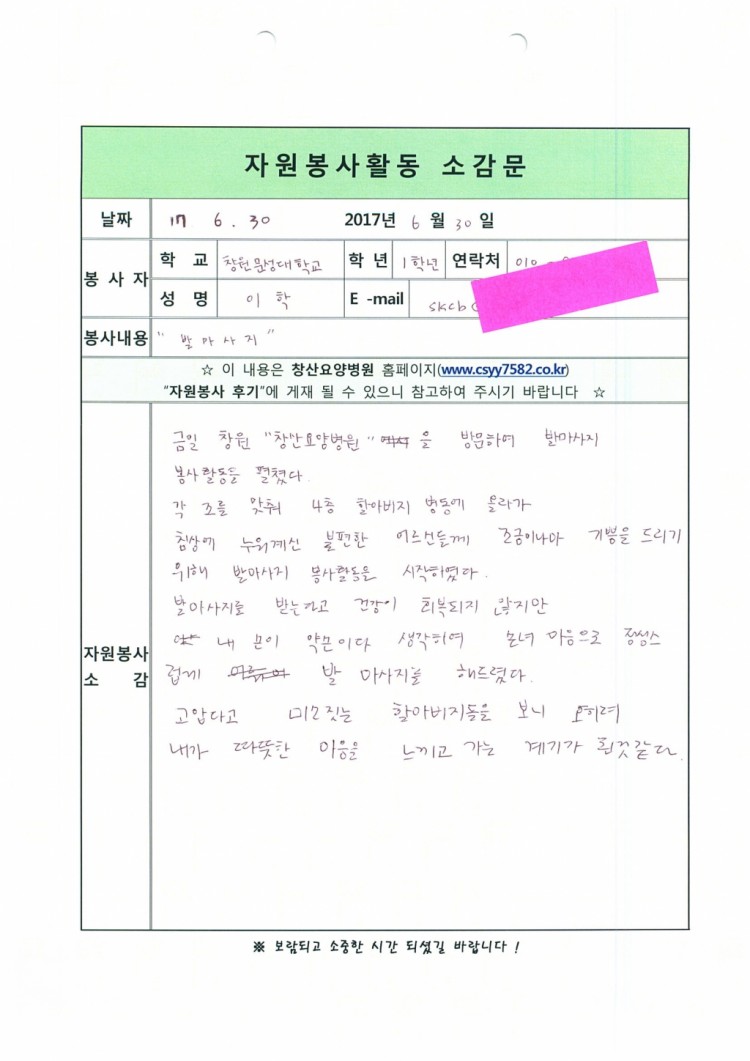 자원봉사활동 소감문
날짜 17 6 . 30 2017년 6 월 30 일
봉 사 자
학 교 창원문성대학교 학 년 1학년 연락처 010 -
성 명 이 학 E -mail skcb
봉사내용 " 발 마 사 지 "
☆ 이 내용은 창산요양병원 홈페이지(www.csyy7582.co.kr)
"자원봉사 후기"에 게재 될 수 있으니 참고하여 주시기 바랍니다 ☆
자원봉사
소 감
금일 창원 "창산요양병원" 을 방문하여 발마사지
봉사활동을 펼쳤다.
각 조를 맞춰 4층 할아버지 병동에 올라가
침상에 누워계신 불편한 어르신들께 조금이나마 기쁨을 드리기
위해 발마사지 봉사활동을 시작하였다.
발마사지를 받는다고 건강이 회복되지 않지만
내 손이 약손이다 생각하여 손녀 마음으로 정성스
럽게 발 마사지를 해드렸다.
고맙다고 미소짓는 할아버지들을 보니 오히려
내가 따뜻한 마음을 느끼고 가는 계기가 된것같다.
※ 보람되고 소중한 시간 되셨길 바랍니다 !